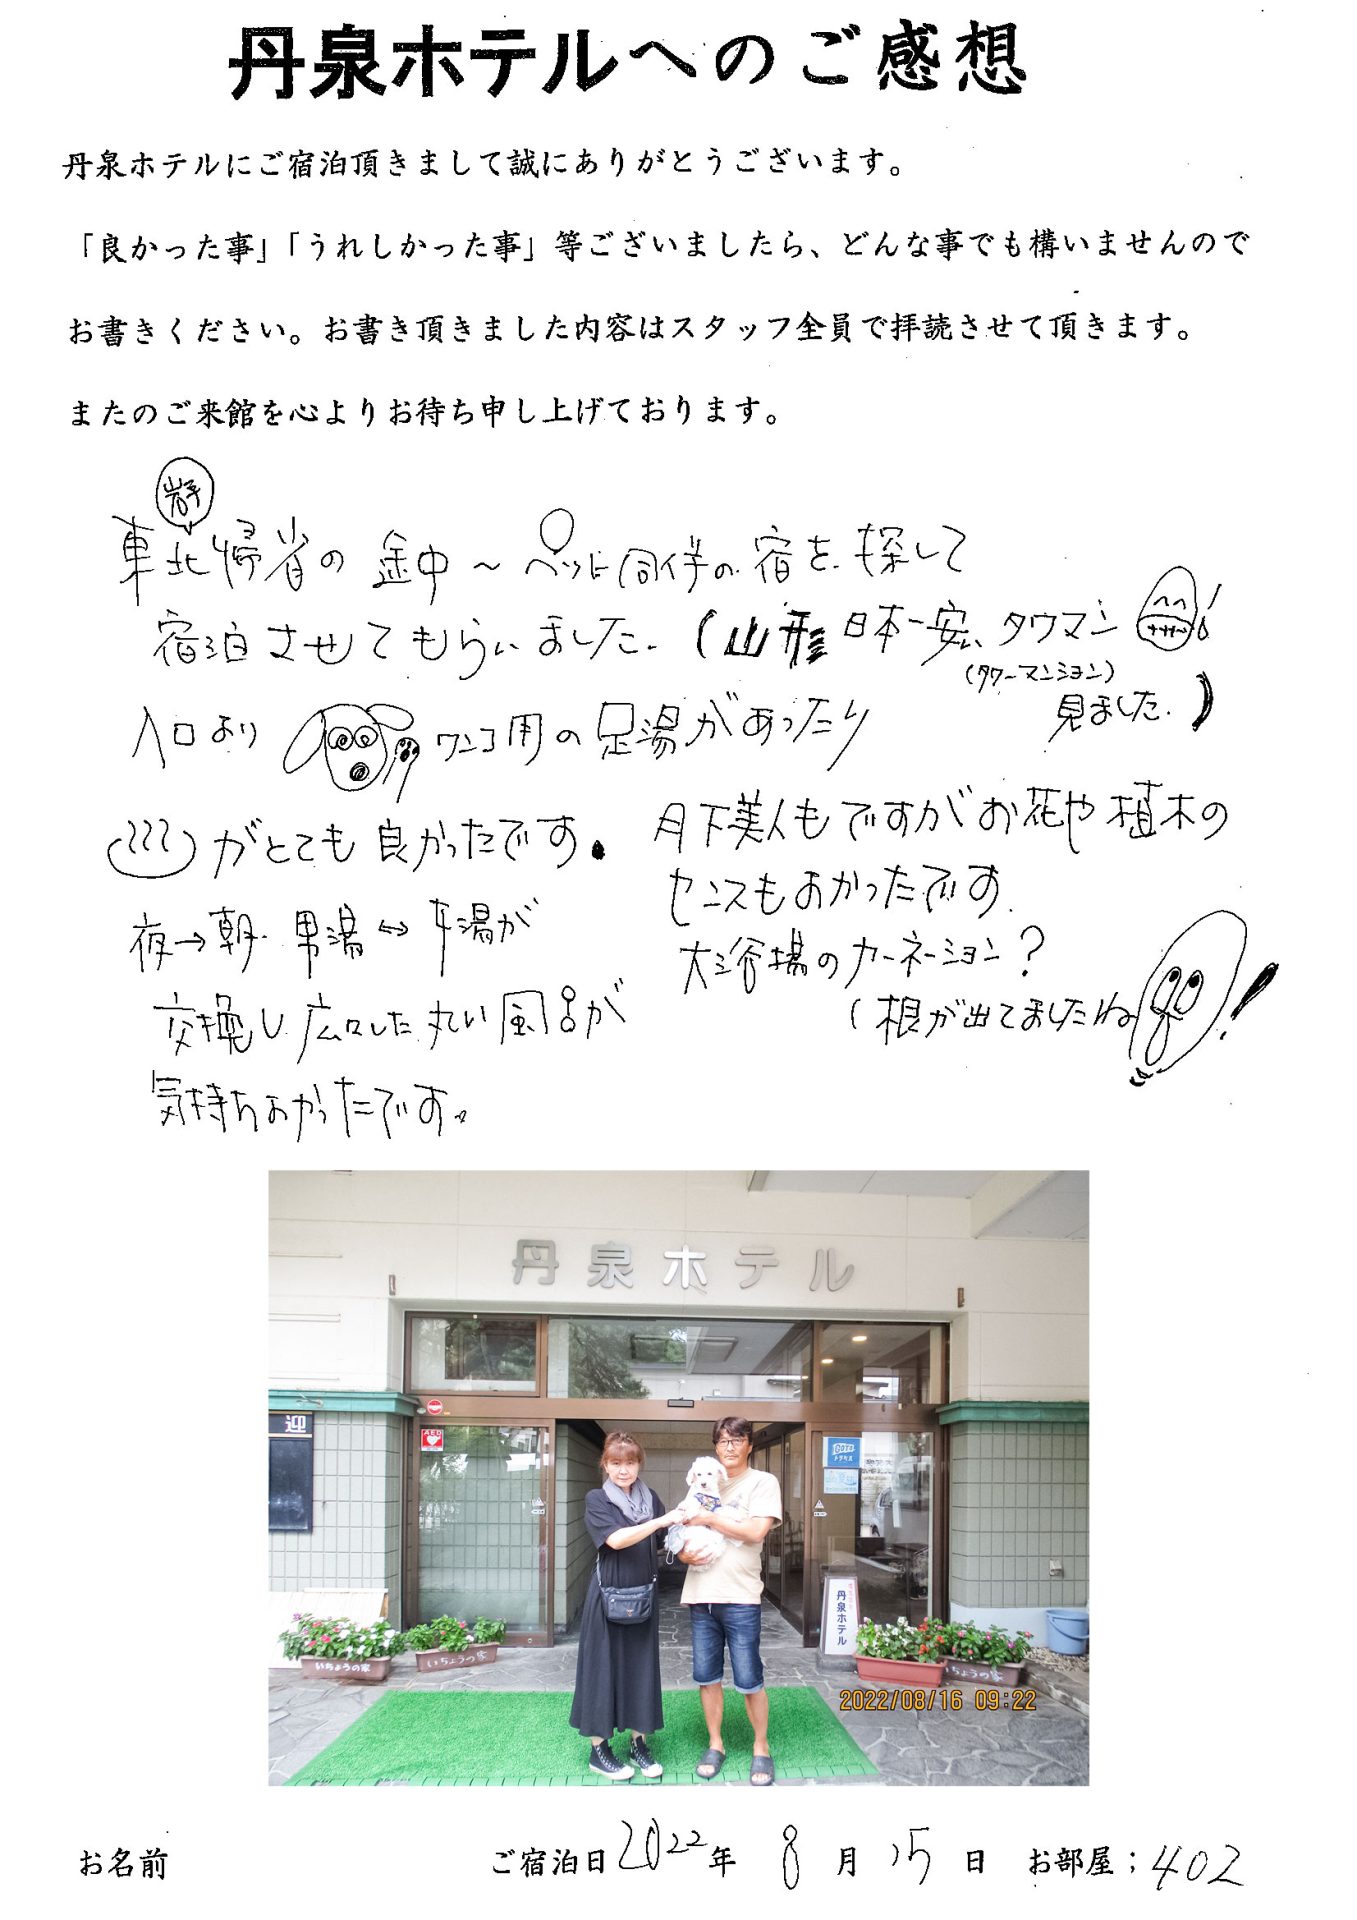 丹泉ホテルへのご感想
丹泉ホテルにご宿泊頂きまして誠にありがとうございます。
「良かった事」「うれしかった事」等ございましたら、どんな事でも構いませんので
お書きください。お書き頂きました内容はスタッフ全員で拝読させて頂きます。
またのご来館を心よりお待ち申し上げております。
岩手
東北帰省の途中〜ペット同伴の宿を探して
宿泊させてもらいました。(山形日本一安い、タウマン!
(タワーマンション)
見ました。)
入口より ワンコ用の足湯があったり
がとても良かったです。
夜→朝 男湯↔女湯が
交換し、広々した丸い風呂が
気持ちよかったです。
月下美人もですがお花や植木の
センスもよかったです。
大浴場のカーネーション?
(根が出てましたね!
丹泉ホテル
迎
AED
丹泉ホテル
いちょうの家
いちょうの家
いちょうの家
2022/08/16 09:22
お名前 ご宿泊日 2022年 8月 15日 お部屋;402